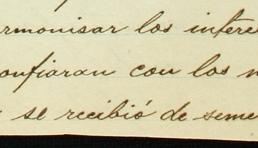 armonisar los intere
onfiaran con los
se recibió de seme